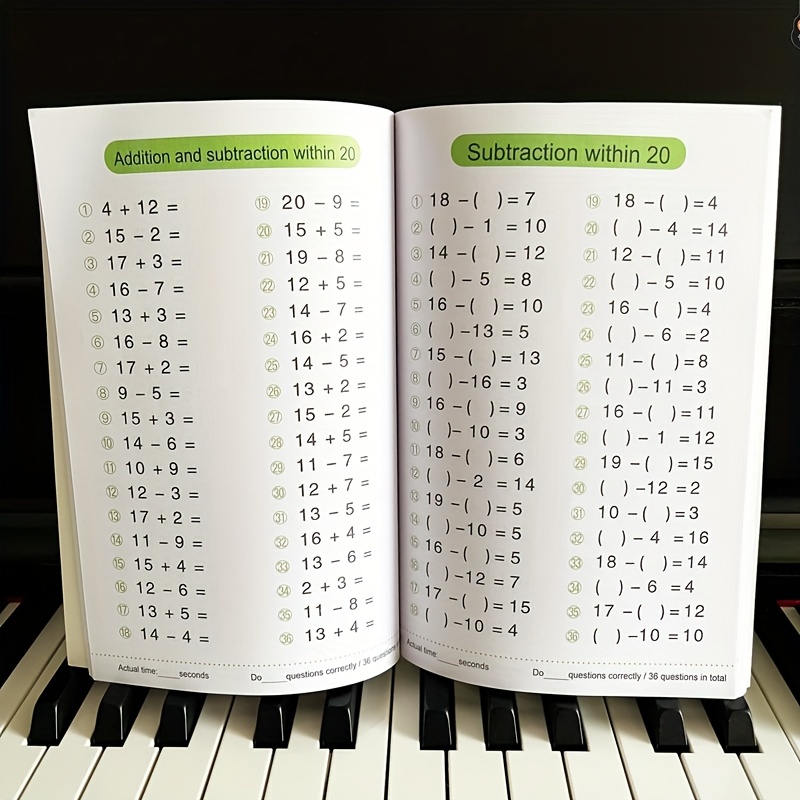 Addition and subtraction within 20
① 4 + 12 =
② 15 − 2 =
③ 17 + 3 =
④ 16 − 7 =
⑤ 13 + 3 =
⑥ 16 − 8 =
⑦ 17 + 2 =
⑧ 9 − 5 =
⑨ 15 + 3 =
⑩ 14 − 6 =
⑪ 10 + 9 =
⑫ 12 − 3 =
⑬ 17 + 2 =
⑭ 11 − 9 =
⑮ 15 + 4 =
⑯ 12 − 6 =
⑰ 13 + 5 =
⑱ 14 − 4 =
⑲ 20 − 9 =
⑳ 15 + 5 =
㉑ 19 − 8 =
㉒ 12 + 5 =
㉓ 14 − 7 =
㉔ 16 + 2 =
㉕ 14 − 5 =
㉖ 13 + 2 =
㉗ 15 − 2 =
㉘ 14 + 5 =
㉙ 11 − 7 =
㉚ 12 + 7 =
㉛ 13 − 5 =
㉜ 16 + 4 =
㉝ 13 − 6 =
㉞ 2 + 3 =
㉟ 11 − 8 =
㊱ 13 + 4 =
Actual time:_____seconds Do_____questions correctly / 36 questions
Subtraction within 20
① 18 −( )= 7
② ( )− 1 = 10
③ 14 −( )= 12
④ ( )− 5 = 8
⑤ 16 −( )= 10
⑥ ( )−13 = 5
⑦ 15 −( )= 13
⑧ ( )−16 = 3
⑨ 16 −( )= 9
⑩ ( )− 10 = 3
⑪ 18 −( )= 6
⑫ ( )− 2 = 14
⑬ 19 −( )= 5
⑭ ( )−10 = 5
⑮ 16 −( )= 5
⑯ ( )−12 = 7
⑰ 17 −( )= 15
⑱ ( )−10 = 4
⑲ 18 −( )=4
⑳ ( )− 4 =14
㉑ 12 −( )=11
㉒ ( )− 5 =10
㉓ 16 −( )=4
㉔ ( )− 6 =2
㉕ 11 −( )=8
㉖ ( )−11 =3
㉗ 16 −( )=11
㉘ ( )− 1 =12
㉙ 19 −( )=15
㉚ ( )−12 =2
㉛ 10 −( )=3
㉜ ( )− 4 =16
㉝ 18 −( )=14
㉞ ( )− 6 =4
㉟ 17 −( )=12
㊱ ( )−10 =10
Actual time:_____seconds Do_____questions correctly / 36 questions in total